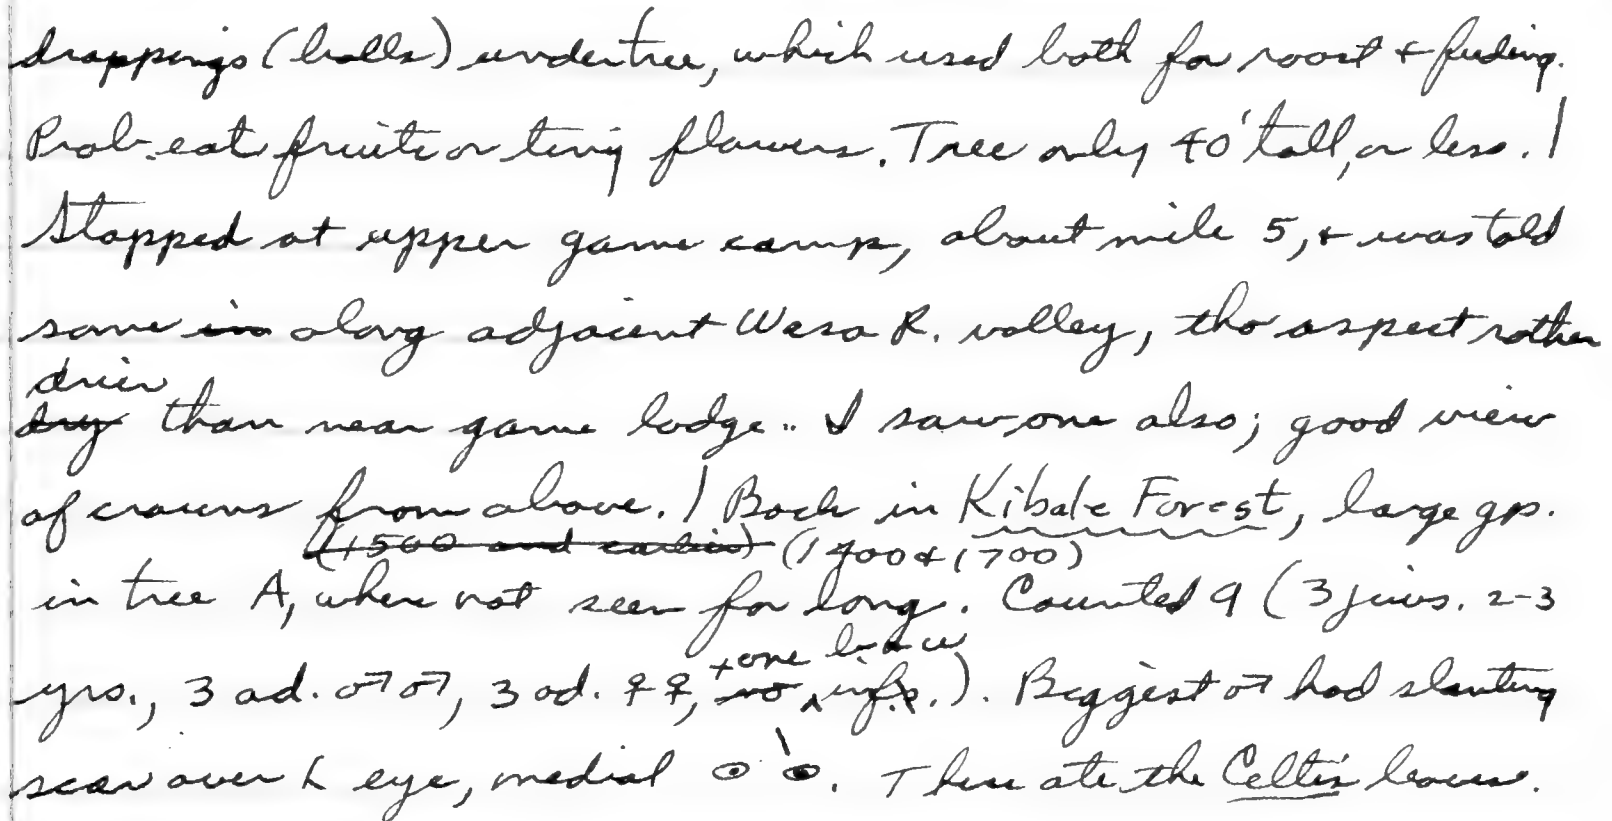 droppings (balls) under tree, which used both for roost + feeding.
Prob. eat fruits or tiny flowers. Tree only 40' tall, or less. |
Stopped at upper game camp, about mile 5, + was told
some in along adjacent Wasa R. valley, tho aspect rather
drier
dry than near game lodge.. I saw one also; good view
of crowns from above. | Back in Kibale Forest, large gp.
(1500 and earlier) (1400 + 1700)
in tree A, where not seen for long. Counted 9 (3 juvs. 2-3
+ one
yrs., 3 ad. ♂♂, 3 ad. ♀♀, no infs.). Biggest ♂ had slanting
scar over L eye, medial. These ate the Celtis leaves.